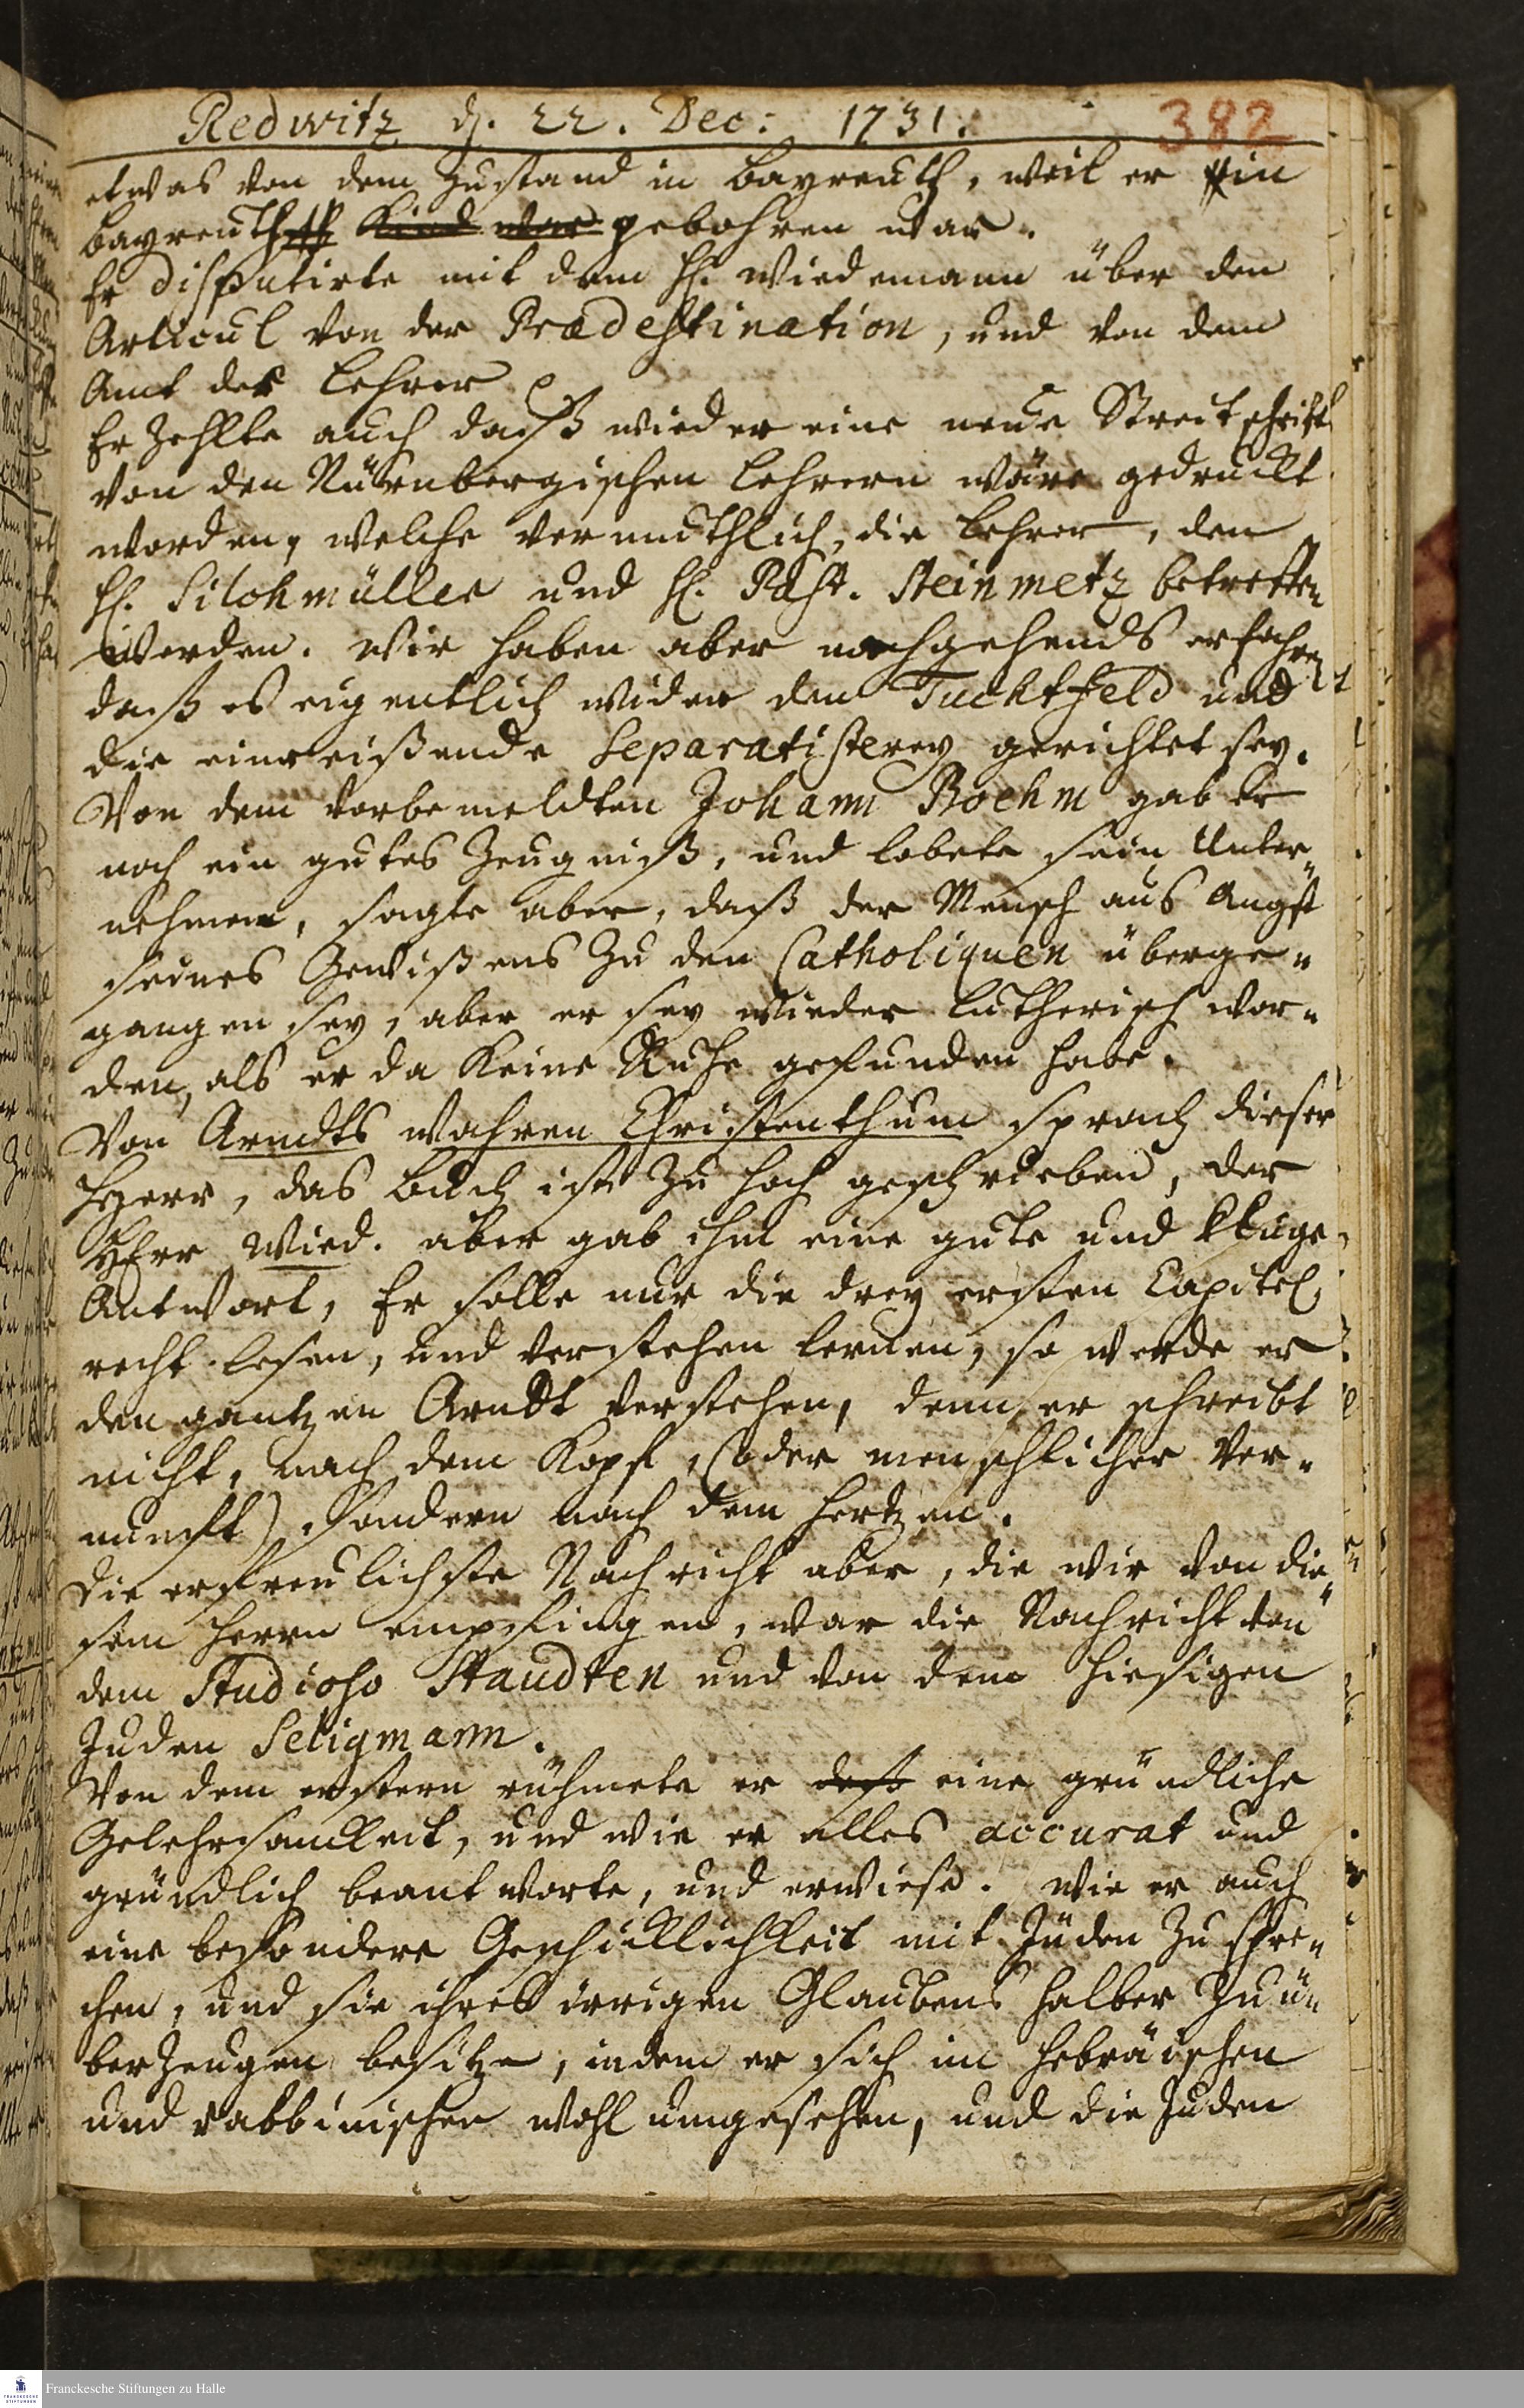 Redwitz d. 22. Dec: 1731.
382
etwas von dem Zustand in Bayreuth, weil er in
Bayreuth Kind war gebohren war.
Er disputirte mit dem H. Wiedemann über den
Articul von der Prædestination, und von dem
Amt der Lehrer.
Er Zehlte auch daß wieder eine neue Streitschrifft
von den Nürnbergischen Lehrern wäre gedruckt
worden, welche vermuthlich, die Lehrer, den
H. Silchmüller und H. Past. Steinmetz betreffen
werden. Wir haben aber nachgehends erfahren
daß es eigentlich wider den Tuchtfeld und
die einreißende Separatisterey gerichtet sey.
Von dem vorbemeldten Johann Boehm gab er
noch ein gutes Zeugniß, und lobete sein Unter„
nehmen, sagte aber, daß der Mensch aus Angst
seines Gewißens zu den Catholiquen überge„
gangen sey, aber er sey wieder Lutherisch wor„
den, als er da keine Ruhe gefunden habe.
Von Arndts wahren Christenthum sprach dieser
Herr, das Buch ist zu hoch geschrieben, der
HErr Wied. aber gab ihm eine gute und kluge
Antwort, Er solle nur die drey ersten Capitel
recht lesen, und verstehen lernen, so werde er
den gantzen Arndt verstehen, denn er schreibt
nicht, nach dem Kopf, (oder menschlicher Ver„
nunfft) sondern nach dem Hertzen.
Die erfreulichste Nachricht aber, die wir von die„
sem Herrn empfingen, war die Nachricht von
dem Studioso Staudten und von dem hiesigen
Juden Seligmann.
Von dem erstern rühmete er daß eine gründliche
Gelehrsamkeit, und wie er alles accurat und
gründlich beantworte, und erwiese. Wie er auch
eine besondere Geschicklichkeit mit Juden zu spre„
chen, und sie ihres irrigen Glaubens halber zu ü„
berzeugen besitze, indem er sich im Hebräischen
und rabbinischen wohl umgesehen, und die Juden
Franckesche Stiftungen zu Halle